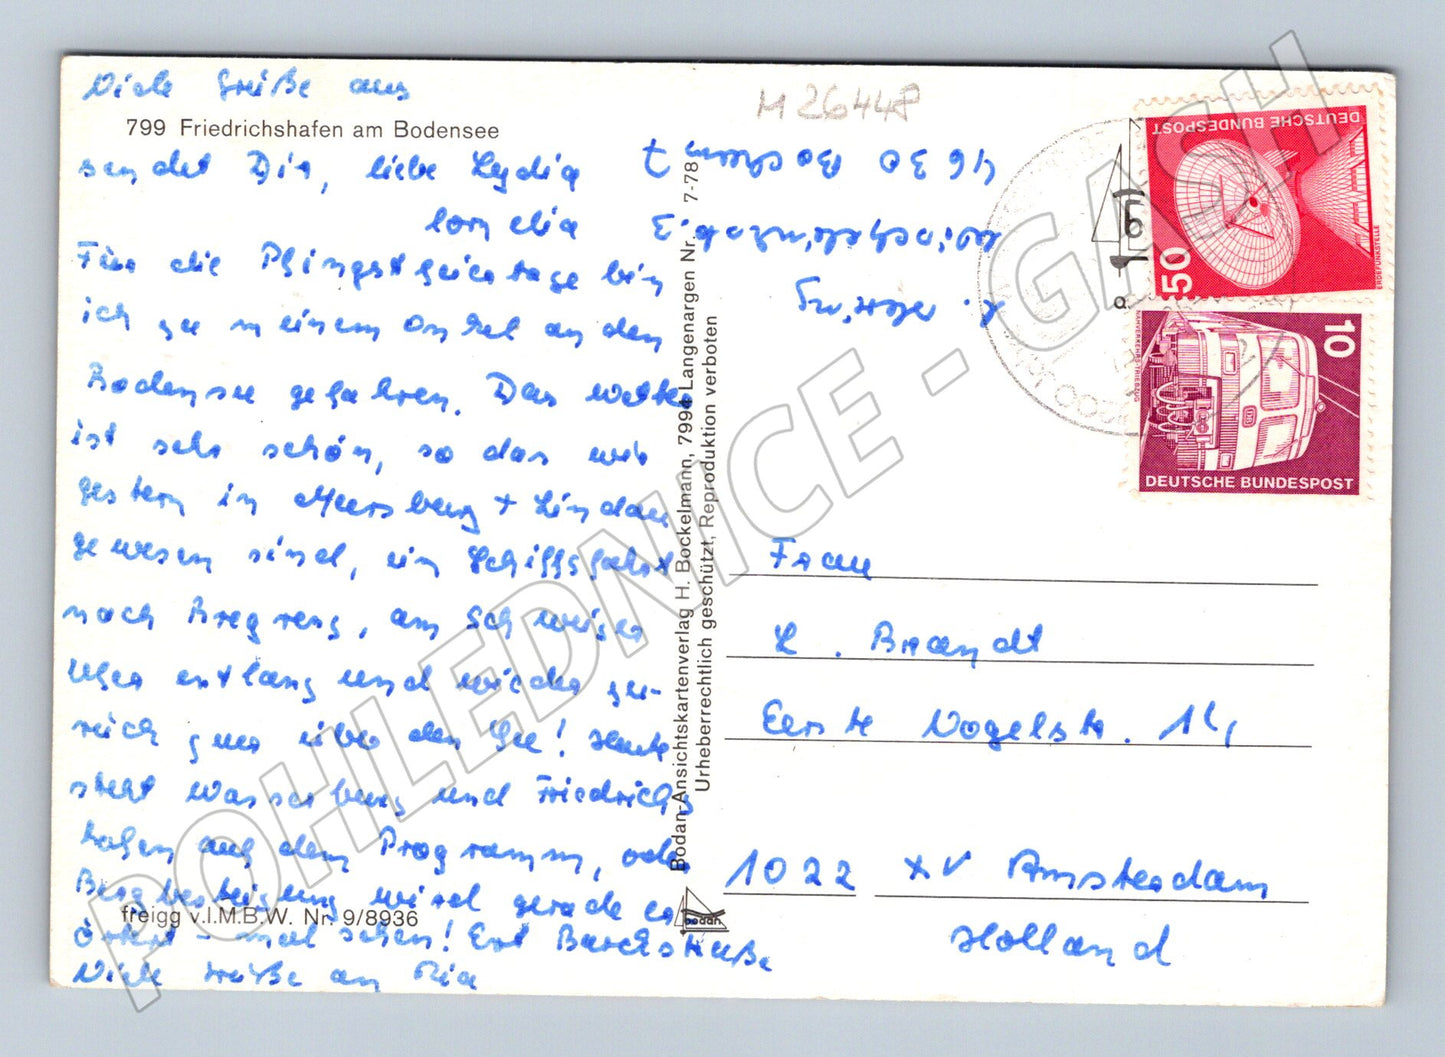 Viele Grüße aus
799 Friedrichshafen am Bodensee
sendet Dir, liebe Lydia
Für die Pfingstfeiertage bin
ich zu meinem Onkel an den
Bodensee gefahren. Das Wetter
ist sehr schön, so das wir
gestern in Meersburg + Lindau
gewesen sind, ein Schiffsfahrt
nach Bregrenz, am Schweizer
Ufer entlang und wieder zu-
rück quer über den See! Heute
steht Wasserburg und Friedrichs
hafen auf dem Programm, oder
Bergbesteigung wird gerade er
freigg v.I.M.B.W. Nr. 9/8936
örtert - mal sehen! Erst
Viele Grüße an Ria
Bodan-Ansichtskartenverlag H. Bockelmann, 7994 Langenargen Nr. 7-78
Urheberrechtlich geschützt, Reproduktion verboten
bodan
M 26448
4630 Bochum 7
DEUTSCHE BUNDESPOST
50
ERDEFUNKSTELLE
10
NAHVERKEHRS-TRIEBZUG
DEUTSCHE BUNDESPOST
Frau
L. Brandt
Eerste Vogelstr.
1022 Amsterdam
Holland
POHLEDNICE - GASH